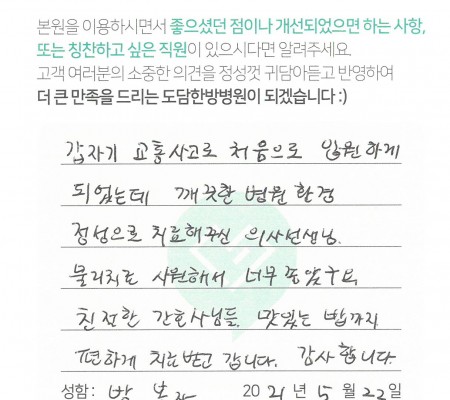 본원을 이용하시면서 좋으셨던 점이나 개선되었으면 하는 사항,
또는 칭찬하고 싶은 직원이 있으시다면 알려주세요.
고객 여러분의 소중한 의견을 정성껏 귀담아듣고 반영하여
더 큰 만족을 드리는 도담한방병원이 되겠습니다 :)
갑자기 교통사고로 처음으로 입원하게
되었는데 깨끗한 병원 환경
정성으로 치료해주신 의사선생님.
물리치료 시원해서 너무 좋았구요
친절한 간호사님들 맛있는 밥까지
편하게 치료받고 갑니다. 감사합니다.
성함: 2021 년 5 월 22 일